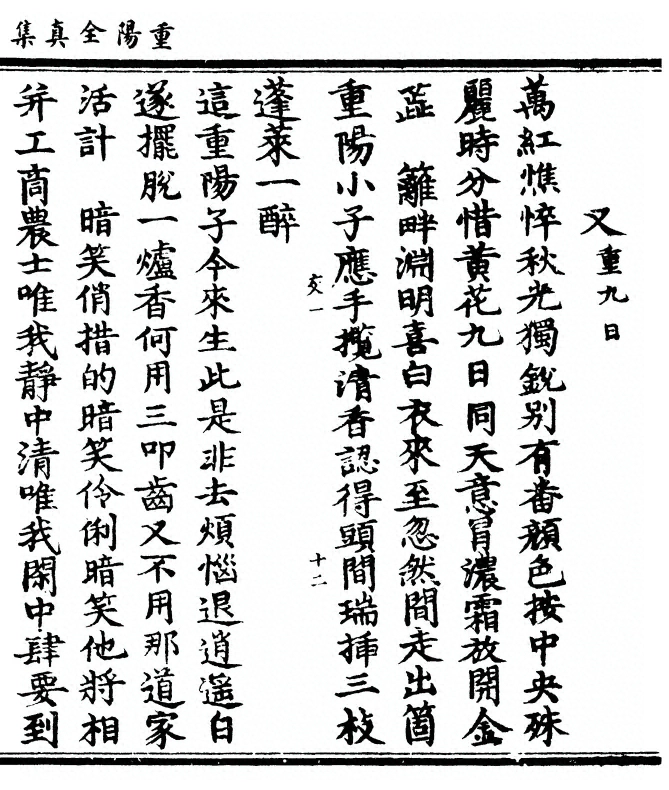 重陽全真集
又重九日
萬紅憔悴秋光獨銳別有番顏色按中央殊
麗時分惜黃花九日同天意冐濃霜放開金
蕋　籬畔淵明喜白衣來至忽然間走出箇
重陽小子應手攬清香認得頭間瑞揷三枝
交一
十二
蓬萊一醉
這重陽子今來生此是非去煩惱退逍遙白
遂擺脫一爐香何用三叩齒又不用那道家
活計　暗笑俏措的暗笑伶俐暗笑他將相
并工商農士唯我靜中清唯我閑中肆要到